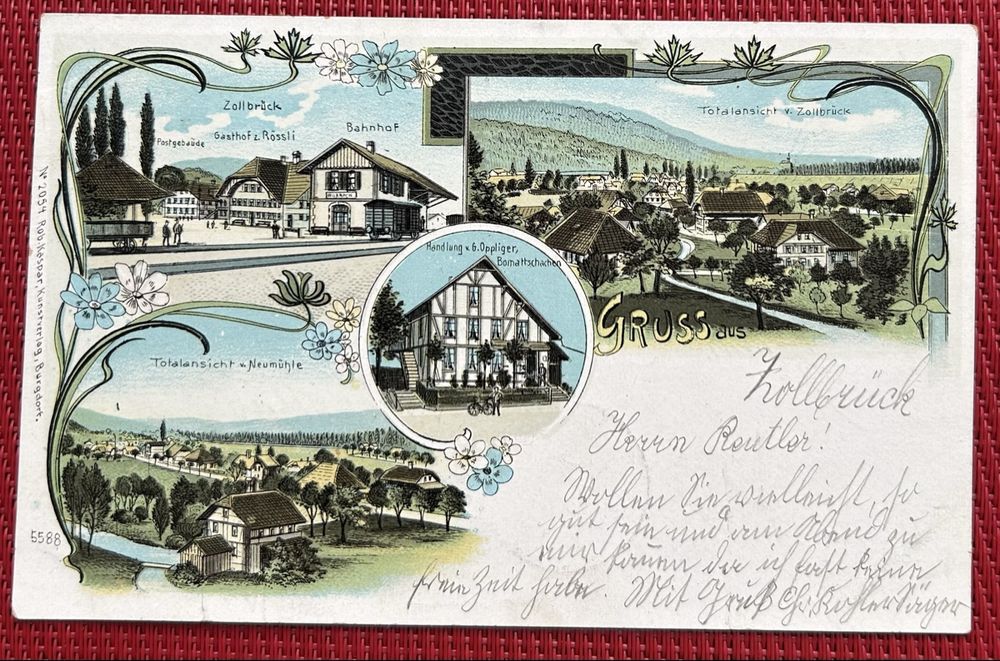 Zollbrück
Postgebäude
Gasthof z. Rössli
Bahnhof
Totalansicht v. Zollbrück
Handlung v. G. Oppliger,
Bomattschachen
Totalansicht v. Neumühle
GRUSS aus
Zollbrück
Herrn Reutler!
Wollen Sie vielleicht, so
gut sein und am Abend zu
mir kommen da ich fast keine
freie Zeit habe. Mit Gruß Chr. Kohler Säger
5588
No 2054 Rob. Räspar, Kunstverlag, Burgdorf.